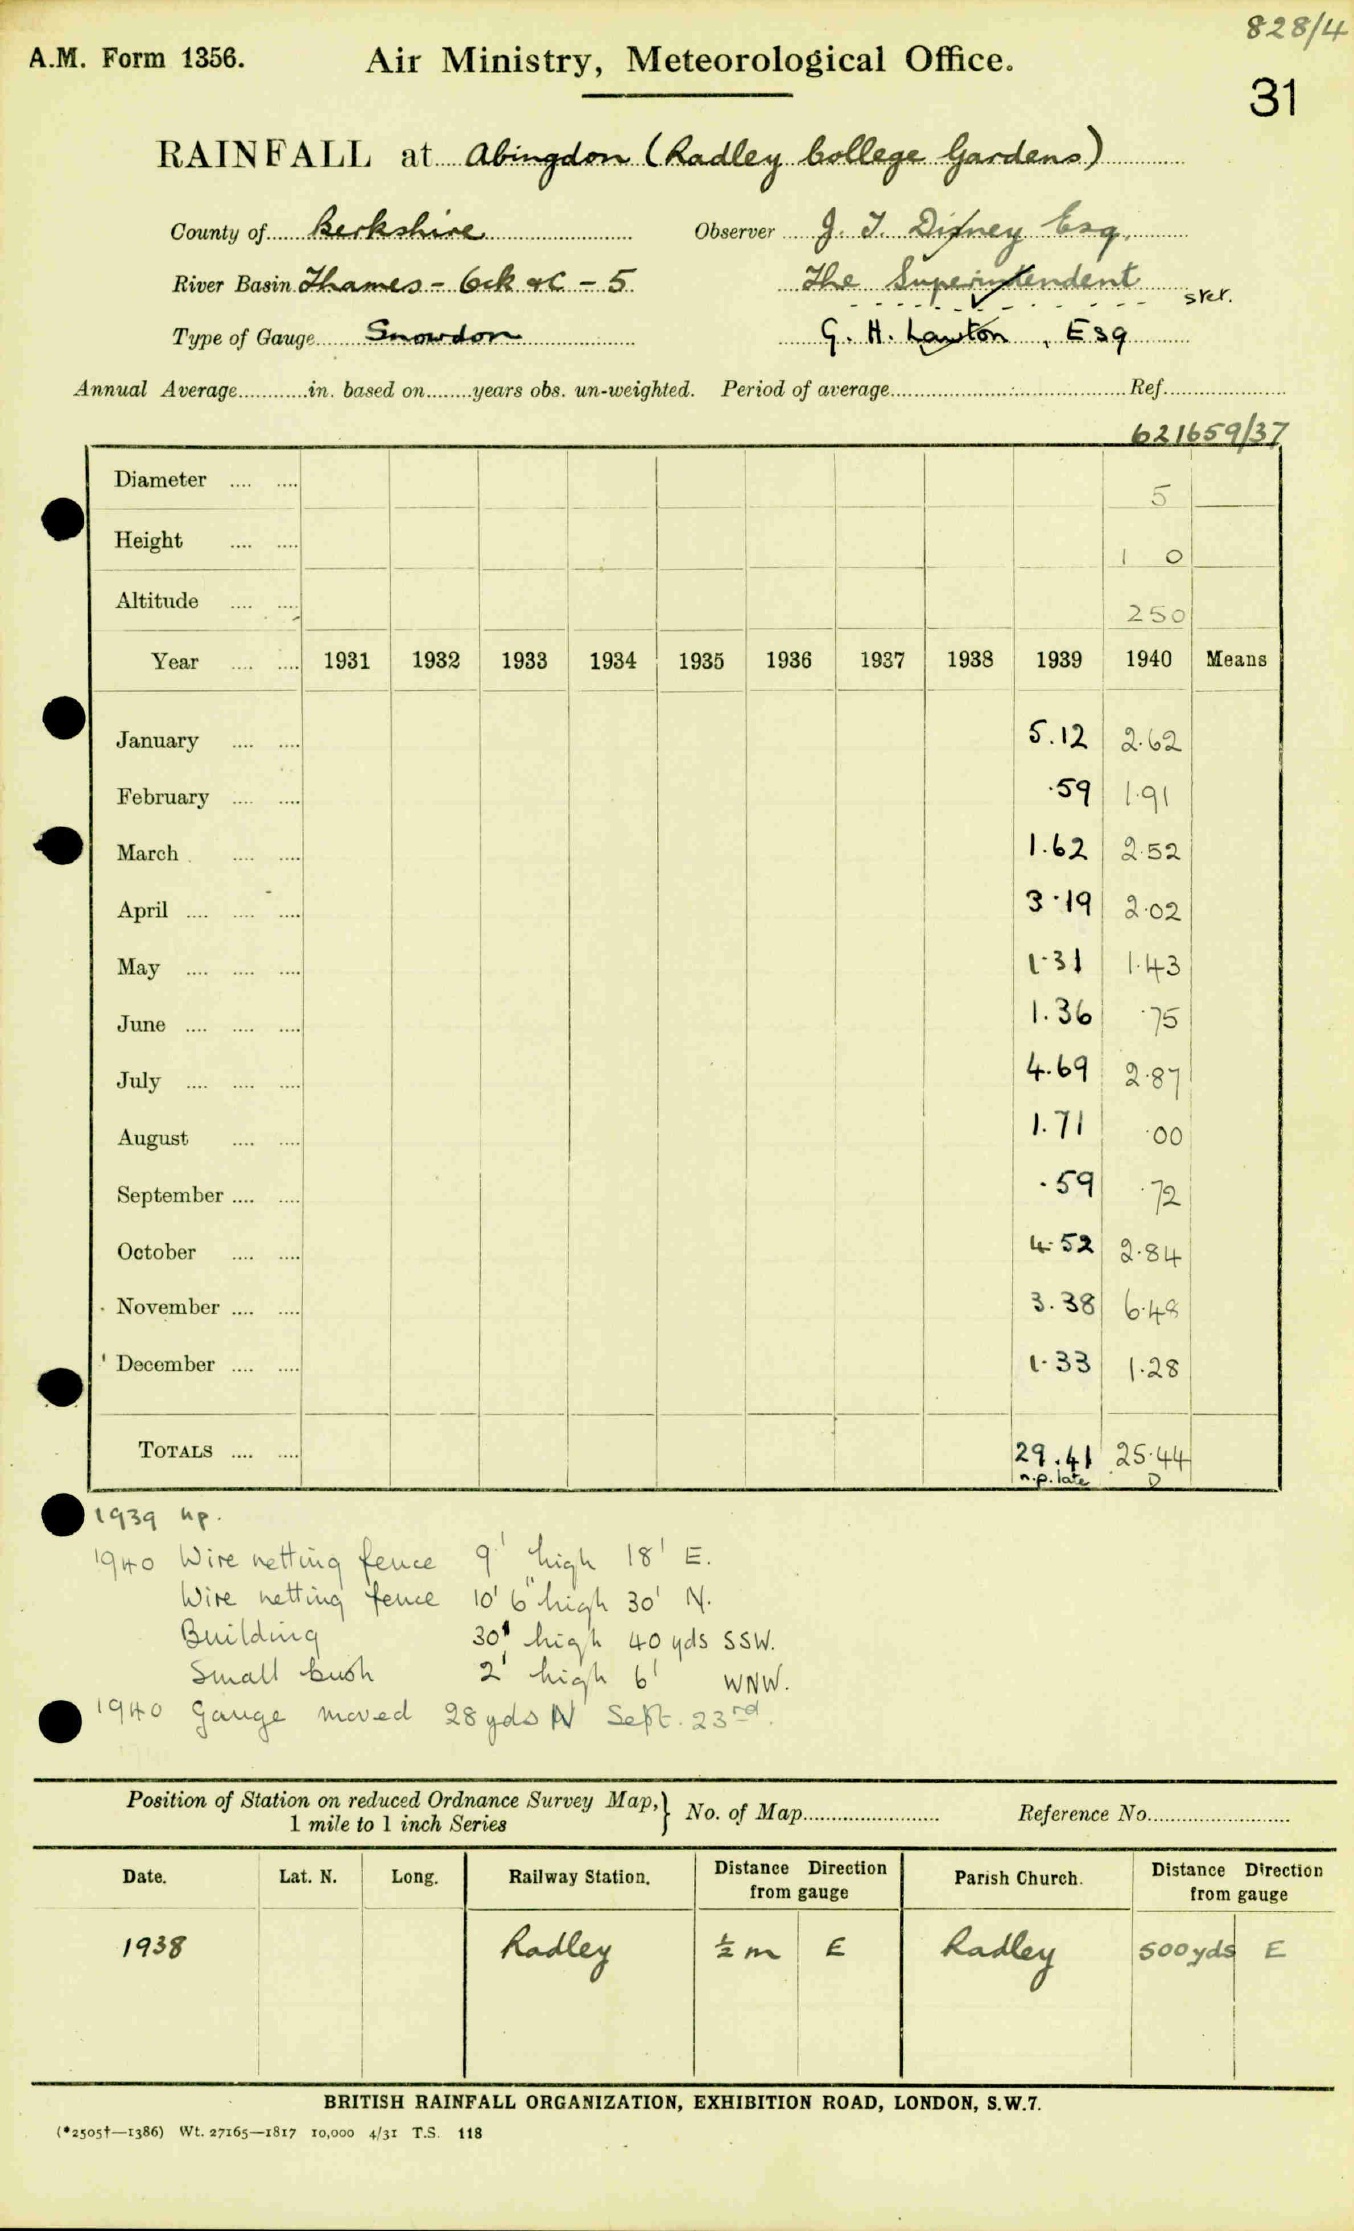 828/4
A.M. Form 1356. Air Ministry, Meteorological Office.
31
RAINFALL at Abingdon (Radley College Gardens)
County of Berkshire Observer J. T. Disney Esq.
River Basin Thames - Ock &c - 5 The Superintendent
Type of Gauge Snowdon G. H. Lawton, Esq
Annual Average............in. based on........years obs. un-weighted. Period of average.......... Ref..........
621659/37
Diameter .... .... 5
Height .... .... 1 0
Altitude .... .... 250
Year .... .... 1931 1932 1933 1934 1935 1936 1937 1938 1939 1940 Means
January .... .... 5.12 2.62
February .... .... .59 1.91
March .... .... 1.62 2.52
April .... .... .... 3.19 2.02
May .... .... .... 1.31 1.43
June .... .... .... 1.36 .75
July .... .... .... 4.69 2.87
August .... .... 1.71 .00
September .... .... .59 .72
October .... .... 4.52 2.84
November .... .... 3.38 6.48
December .... .... 1.33 1.28
TOTALS .... .... 29.41 25.44
n.p. late D
1939 np.
1940 Wire netting fence 9' high 18' E.
Wire netting fence 10' 6" high 30' N.
Building 30' high 40 yds SSW.
Small bush 2' high 6' WNW.
1940 Gauge moved 28 yds N Sept. 23rd.
Position of Station on reduced Ordnance Survey Map,} No. of Map.......... Reference No..........
1 mile to 1 inch Series
Date. Lat. N. Long. Railway Station. Distance Direction from gauge Parish Church. Distance Direction from gauge
1938 Radley ½ m E Radley 500 yds E
BRITISH RAINFALL ORGANIZATION, EXHIBITION ROAD, LONDON, S.W.7.
(*2505†—1386) Wt. 27165—1817 10,000 4/31 T.S. 118